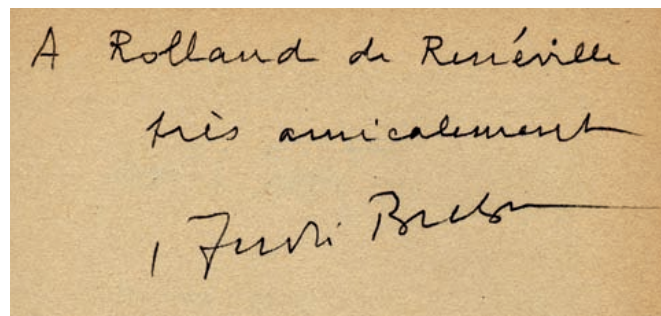 A Rolland de Renéville
très amicalement
André Breton